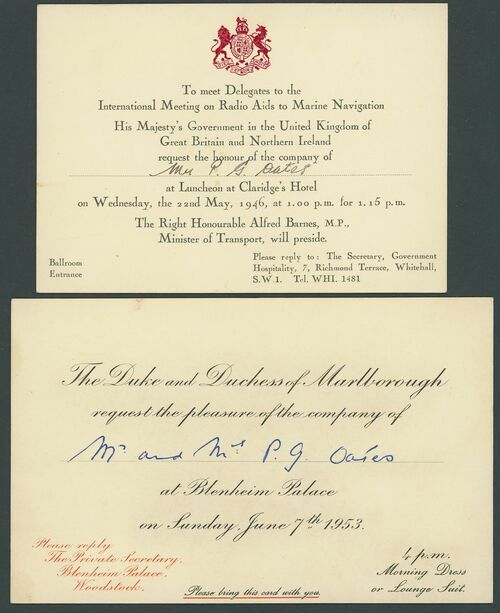 To meet Delegates to the
International Meeting on Radio Aids to Marine Navigation
His Majesty's Government in the United Kingdom of
Great Britain and Northern Ireland
request the honour of the company of
Mrs P. G. Oates
at Luncheon at Claridge's Hotel
on Wednesday, the 22nd May, 1946, at 1.00 p.m. for 1.15 p.m.
The Right Honourable Alfred Barnes, M.P.,
Minister of Transport, will preside.
Ballroom
Entrance
Please reply to: The Secretary, Government
Hospitality, 7, Richmond Terrace, Whitehall,
S.W.1. Tel. WHI. 1481
The Duke and Duchess of Marlborough
request the pleasure of the company of
Mr and Mrs P. G. Oates
at Blenheim Palace
on Sunday, June 7th 1953.
Please reply
The Private Secretary,
Blenheim Palace,
Woodstock.
Please bring this card with you.
4 p.m.
Morning Dress
or Lounge Suit.